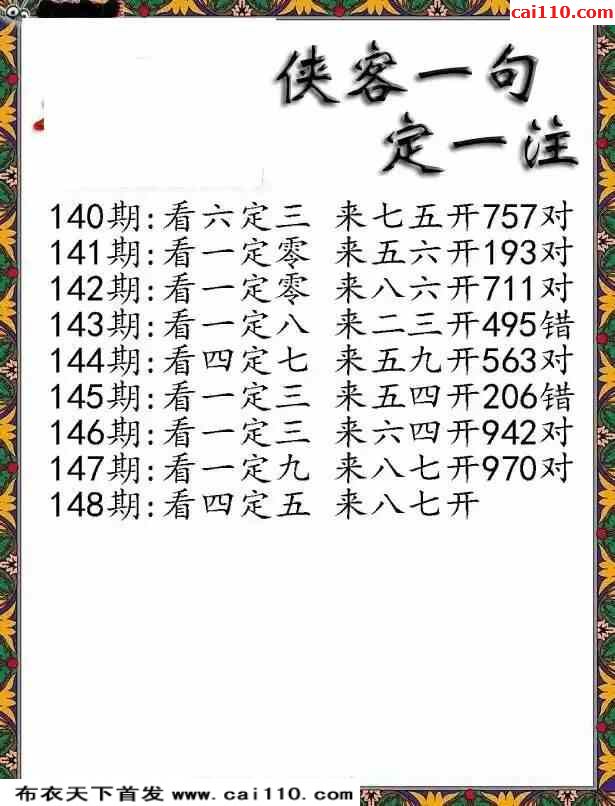 cai110.com
侠客一句
定一注
140期:看六定三 来七五开757对
141期:看一定零 来五六开193对
142期:看一定零 来八六开711对
143期:看一定八 来二三开495错
144期:看四定七 来五九开563对
145期:看一定三 来五四开206错
146期:看一定三 来六四开942对
147期:看一定九 来八七开970对
148期:看四定五 来八七开
布衣天下首发 www.cai110.com